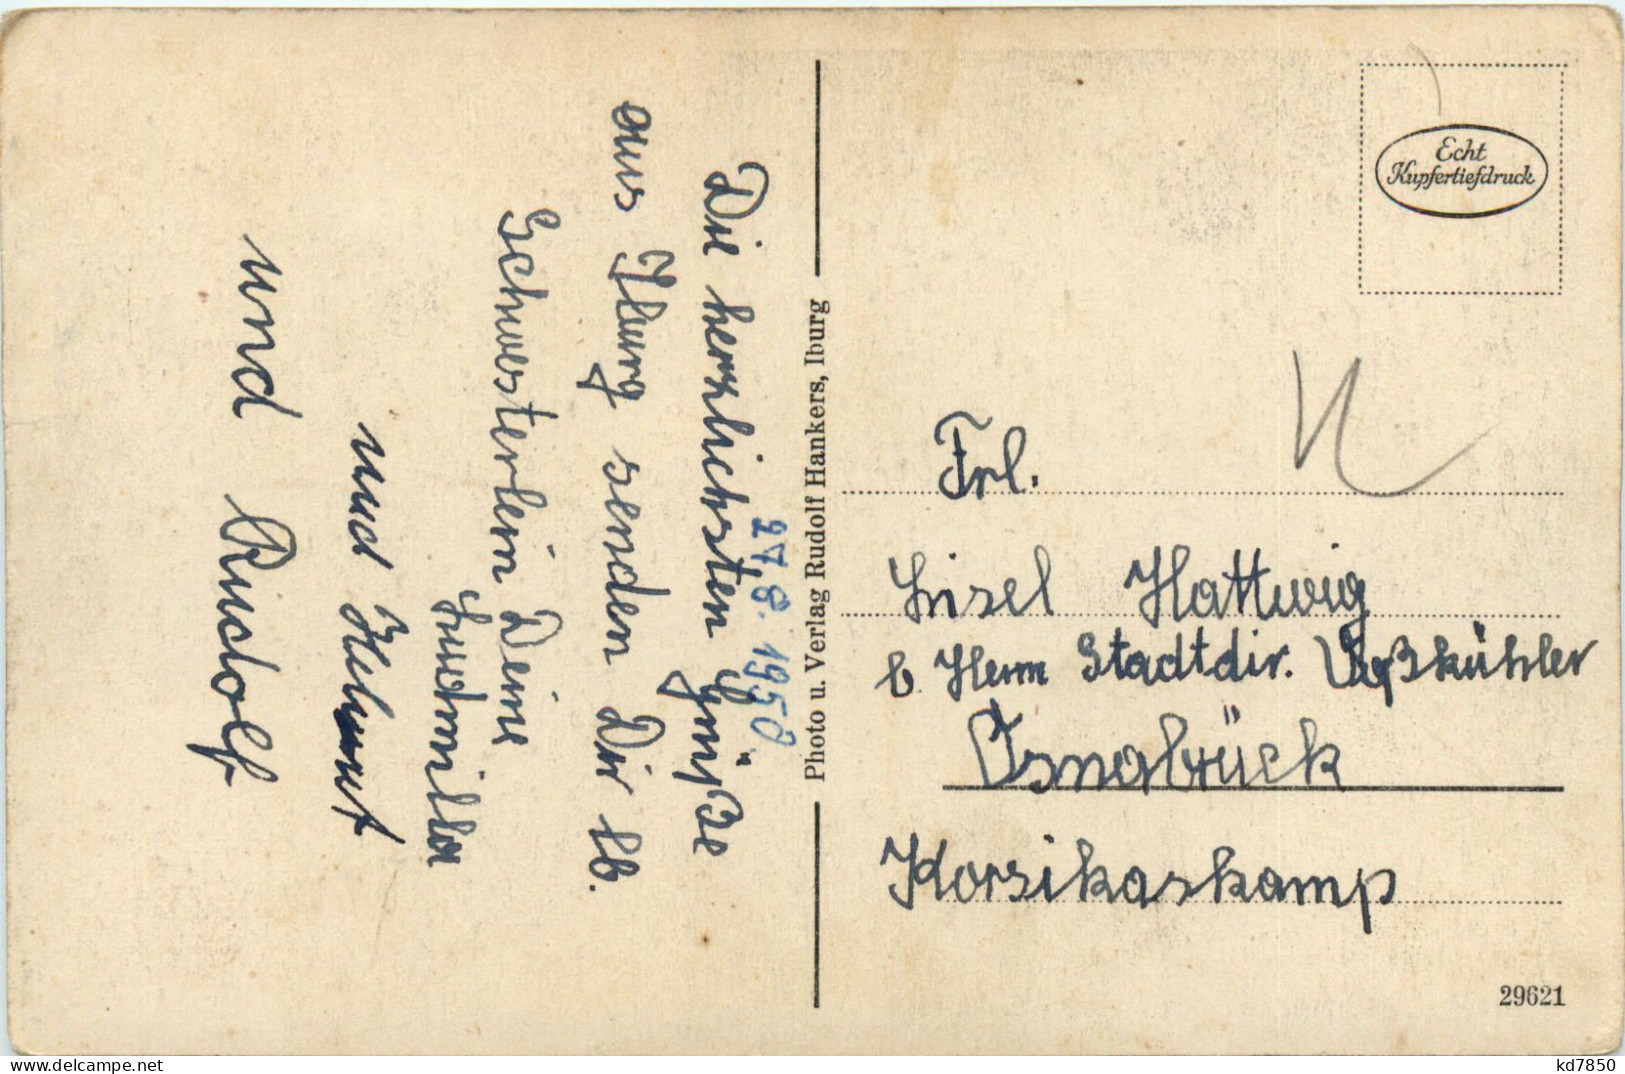 27.8.1950.
Die herzlichsten Grüße
aus Iburg senden Dir lb.
Schwesterlein Deine
Ludmilla
und Helmut
und Rudolf
Photo u. Verlag Rudolf Hankers, Iburg
Echt
Kupfertiefdruck
Frl.
Lisel Hattwig
b. Herrn Stadtdir.
Osnabrück
Korsikaskamp
29621
delcampe.net
kd7850